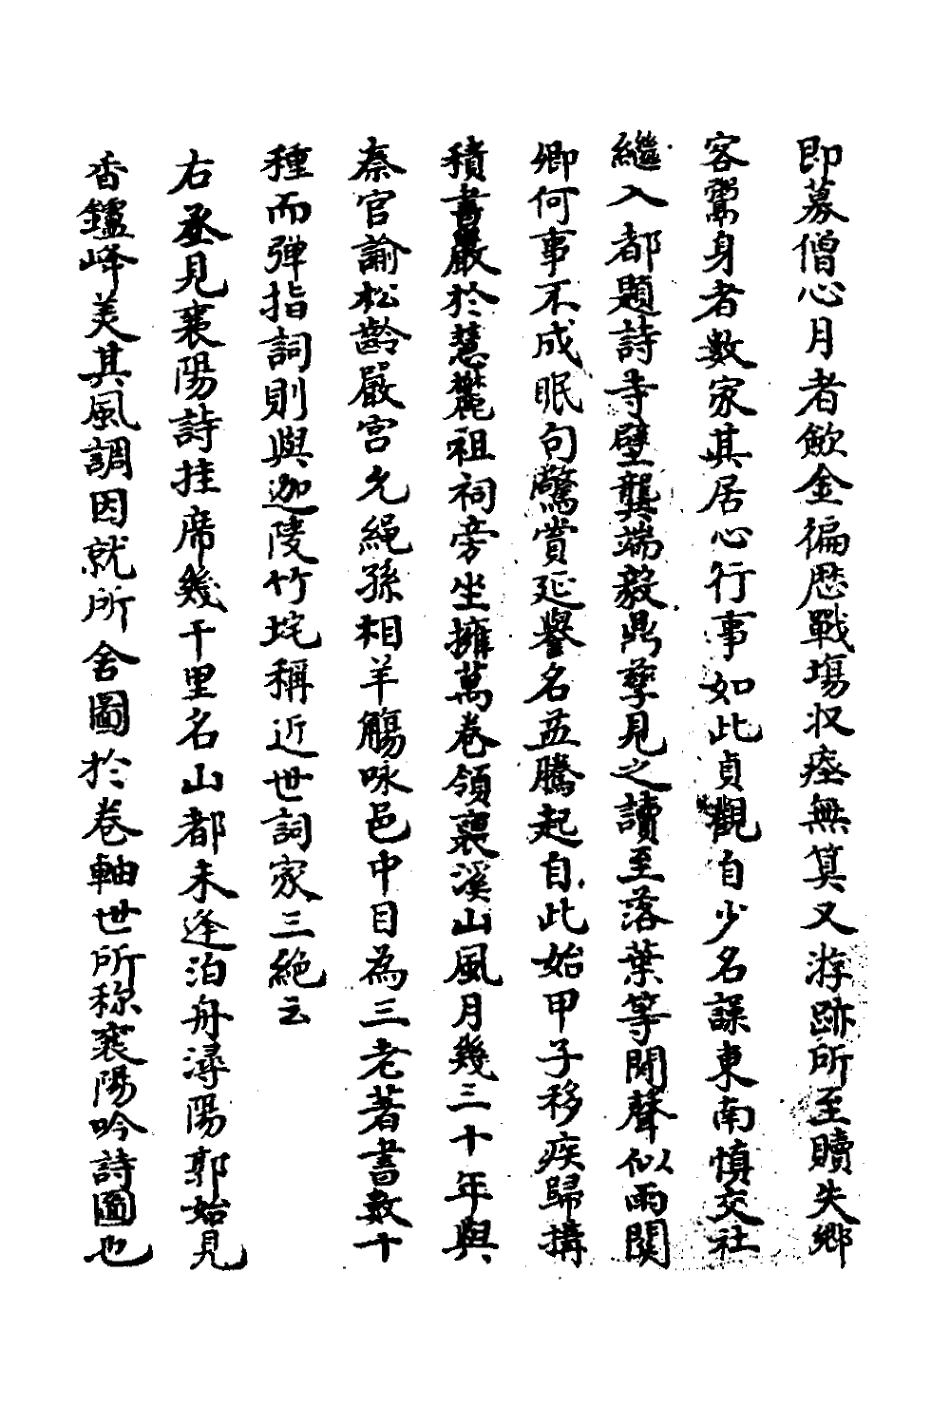 即募僧心月者飲金徧歴戰塲収瘞無算又游跡所至贖失鄉
客鬻身者數家其居心行事如此貞觀自少名譟東南慎交社
繼入都題詩寺壁龔端毅鼎孳見之讀至落葉等聞聲似雨関
卿何事不成眠句驚賞延譽名益騰起自此始甲子移疾歸搆
積書巖於慧麓祖祠旁坐擁萬卷領褱溪山風月幾三十年與
秦官諭松齡嚴宫允繩孫相羊觴咏邑中目為三老著書數十
種而弹指詞則與迦陵竹垞稱近世詞家三絶云
右丞見襄陽詩挂席幾千里名山都未逢泊舟潯陽郭始見
香鑪峰美其風調因就所舍圖於卷軸世所称襄陽吟詩圖也